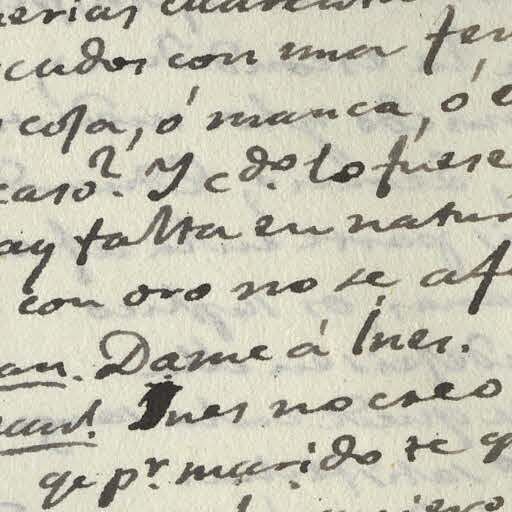 cudos con una
coja, ó manca, ó
caso? Y cdo. lo fuese
ay falta en natur
con oro no se af
an. Dame á Ines.
Ines no creo
qe pr. marido te q